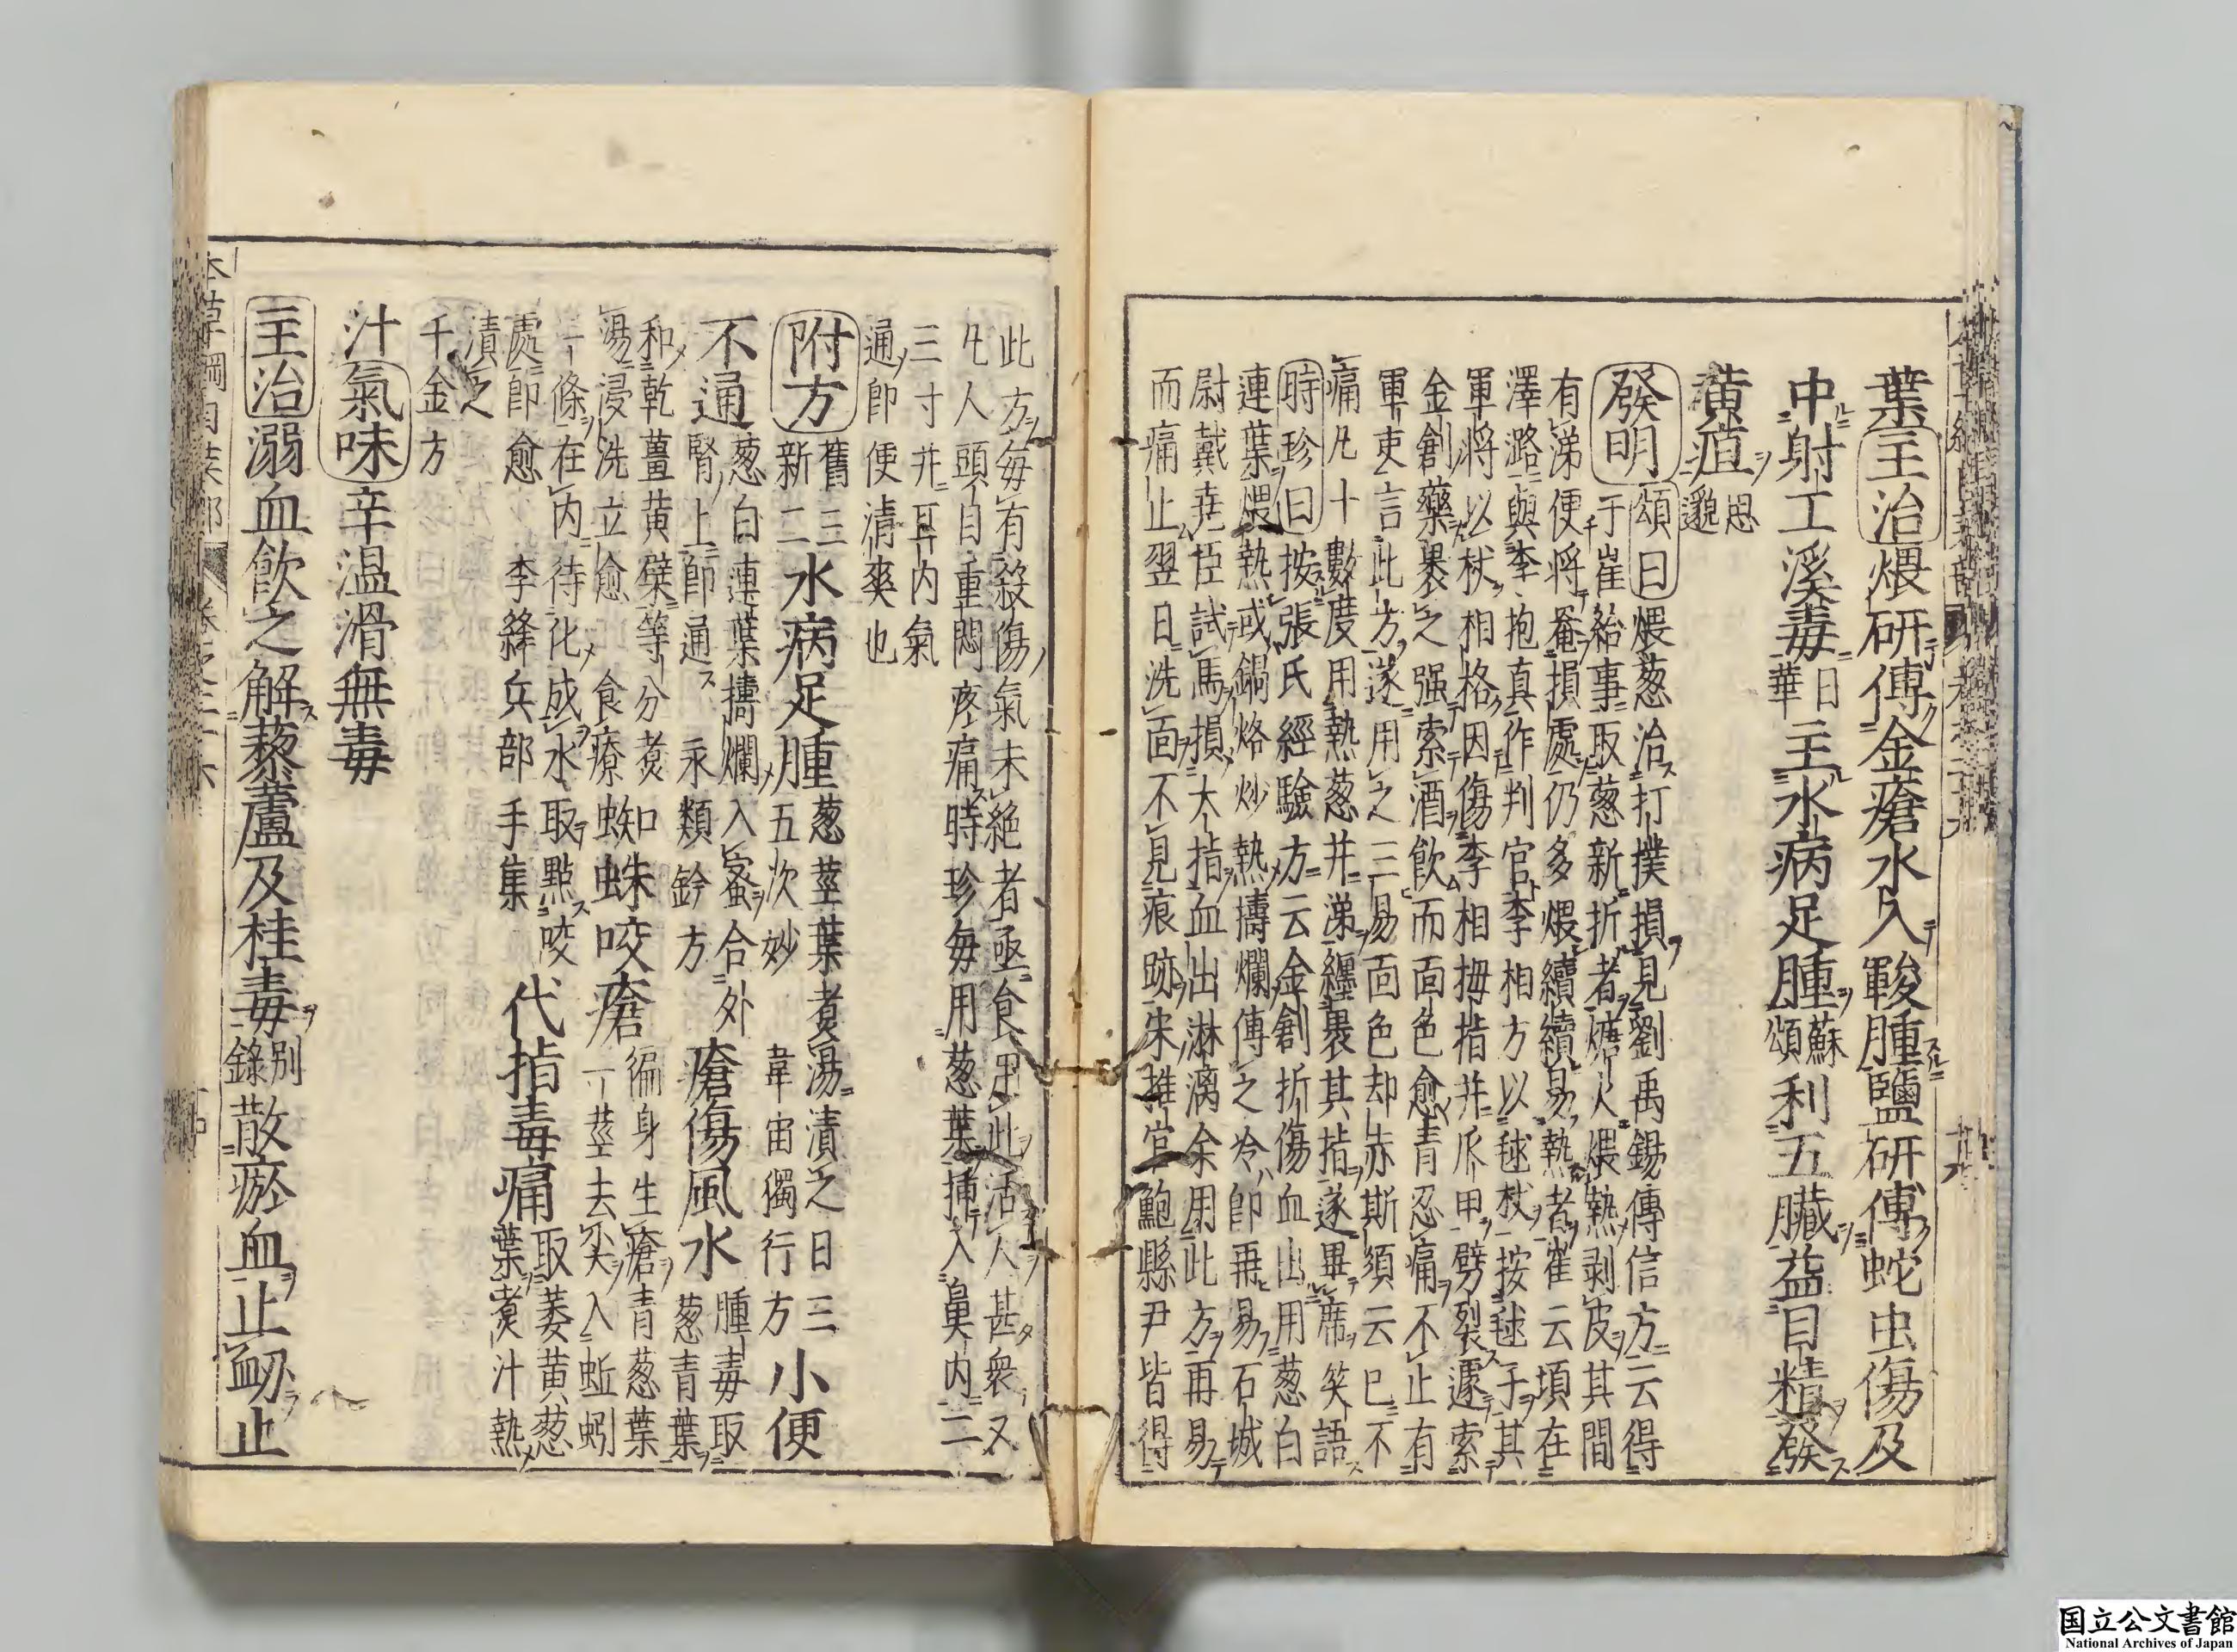 葉主治煨研傅金瘡水入皸腫鹽研傅蛇虫傷及
中射工溪毒日華主水病足腫蘇頌利五臟益目精發
黄疸思邈
發明頌曰煨葱治打撲損見劉禹錫傳信方云得
于崔給事取葱新折者煻火煨熱剥皮其間
有涕便將罨損處仍多煨續續易熱者崔云頃在
澤潞與李抱真作判官李相方以毬杖按毬子其
軍將以杖相格因傷李相拇指并爪甲劈裂遽索
金創藥裹之强索酒飲而面色愈青忍痛不止有
軍吏言此方遂用之三易面色却赤斯須云已不
痛凡十數度用熱葱并涕纏裹其指遂畢席笑語
時珍曰按張氏經驗方云金創折傷血出用葱白
連葉煨熱或鍋烙炒熱擣爛傅之冷即再易石城
尉戴尭臣試馬損大指血出淋漓余用此方再易
而痛止翌日洗面不見痕跡宋推官鮑縣尹皆得
此方毎有殺傷氣未絶者亟食用此活人甚衆又
凡人頭目重悶疼痛時珍毎用葱葉挿入鼻内二
三寸并耳内氣
通即便清爽也
附方舊三新二水病足腫葱莖葉煮湯漬之日三五次妙韋宙獨行方小便
不通葱白連葉擣爛入蜜合外腎上即通永類鈐方瘡傷風水腫毒取葱青葉
和乾薑黄蘗等分煮湯浸洗立愈食療蜘蛛咬瘡徧身生瘡青葱葉
一條在内待化成水取點咬處即愈李絳兵部手集代指毒痛取萎黄葱葉煮汁熱
漬之
千金方
汁氣味辛温滑無毒
主治溺血飲之解藜蘆及桂毒別錄散瘀血止衂止
国立公文書館
National Archives of Japan